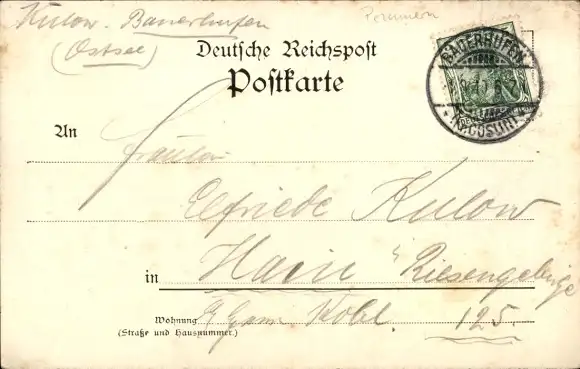 Kulow. Bauerhufen
Pommern
(Ostsee)
Deutsche Reichspost
Postkarte
BAUERHUFEN
(KR. CÖSLIN)
An
Fräulein
Elfriede Kulow
in Hain i/ Riesengebirge
Wohnung
(Straße und Hausnummer.) 125.